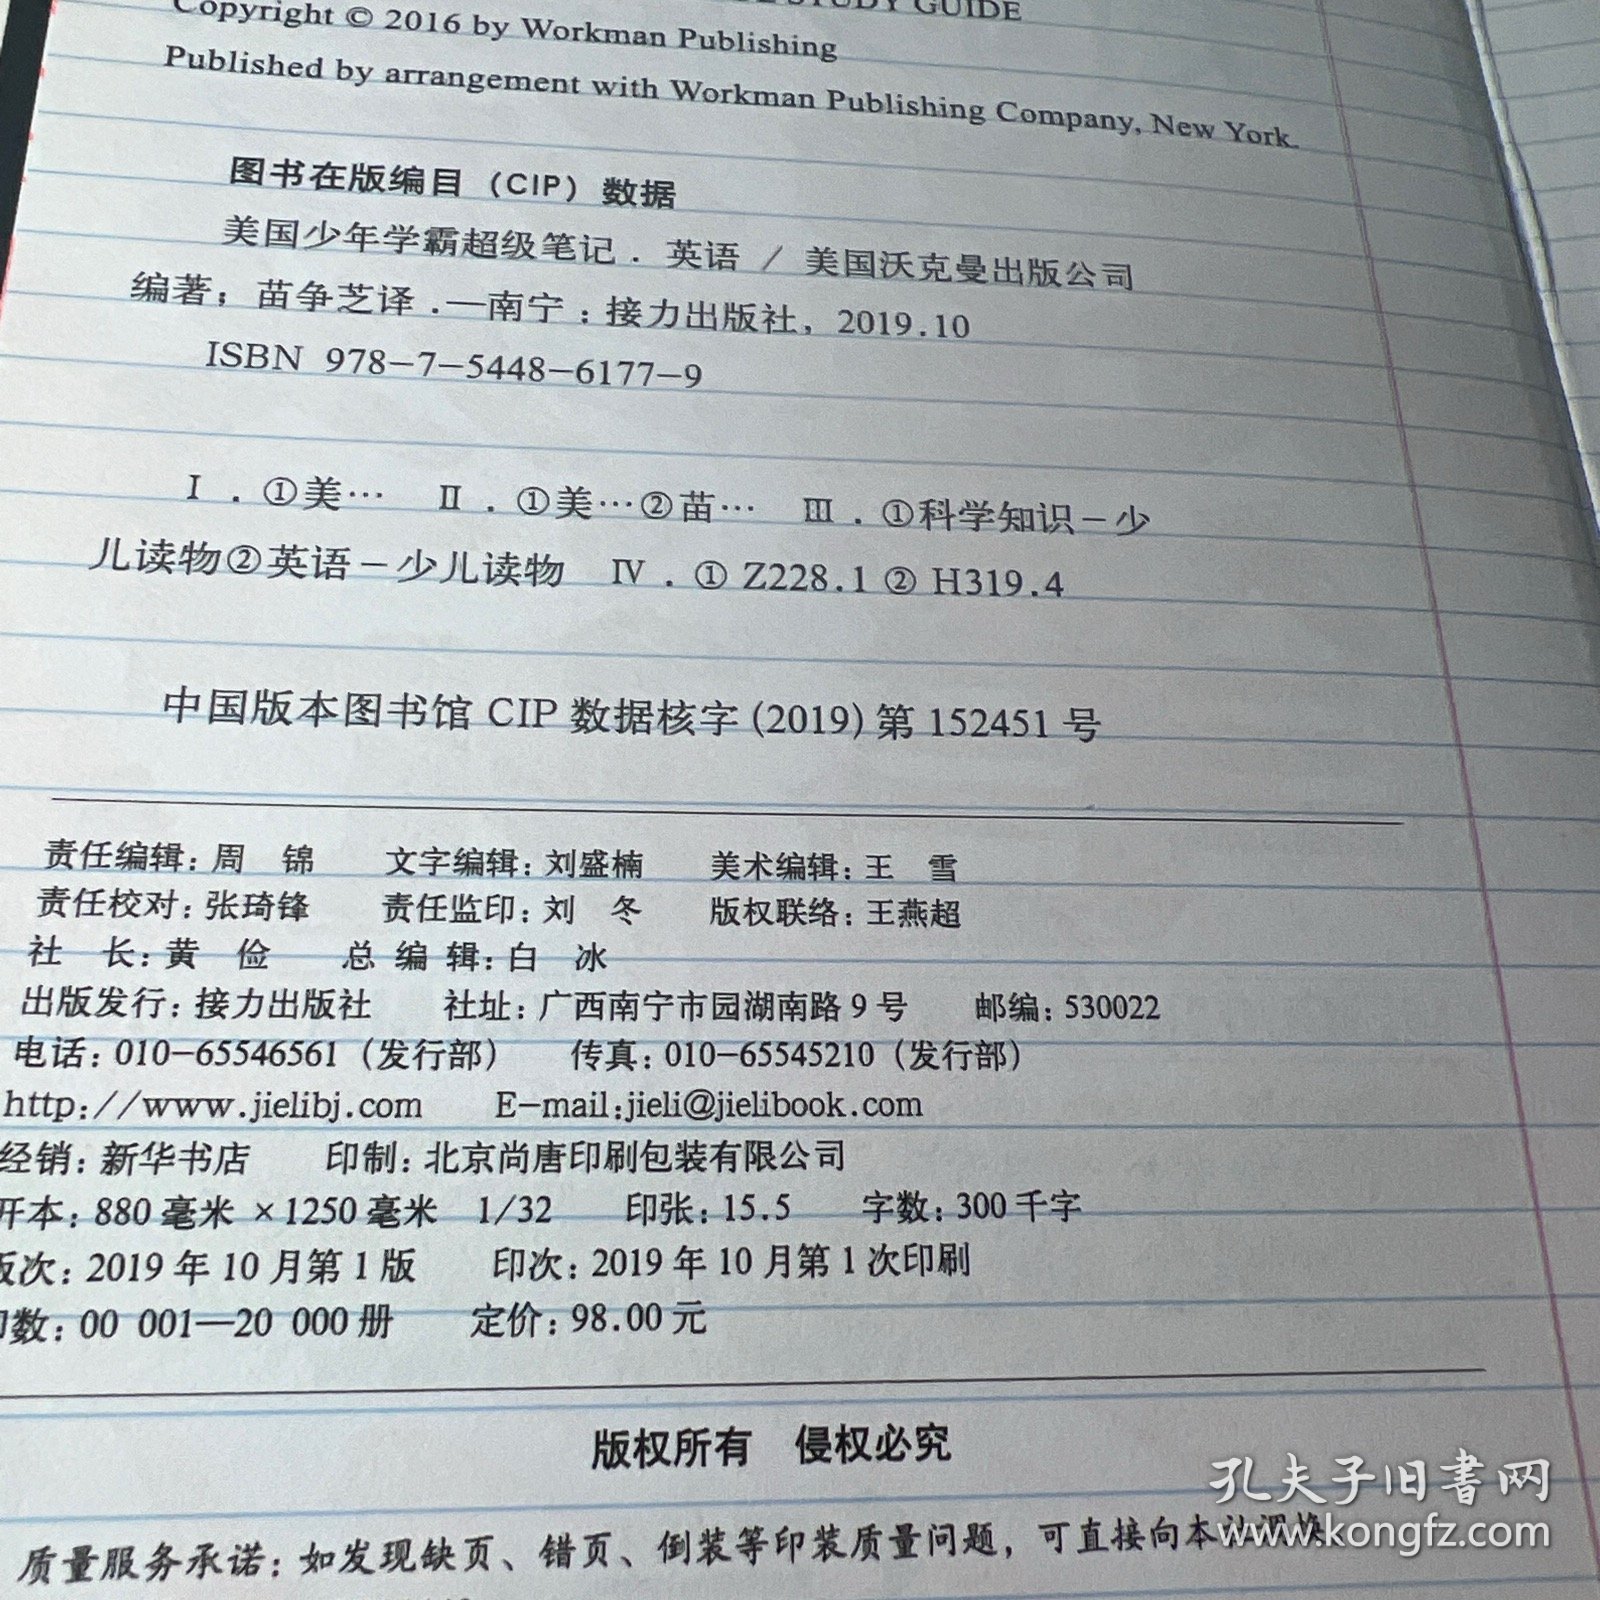 STUDY GUIDE
Copyright © 2016 by Workman Publishing
Published by arrangement with Workman Publishing Company, New York.
图书在版编目（CIP）数据
美国少年学霸超级笔记．英语 / 美国沃克曼出版公司
编著；苗争芝译．—南宁：接力出版社，2019.10
ISBN 978-7-5448-6177-9
Ⅰ．①美… Ⅱ．①美…②苗… Ⅲ．①科学知识－少
儿读物②英语－少儿读物 Ⅳ．① Z228.1 ② H319.4
中国版本图书馆 CIP 数据核字 (2019) 第 152451 号
责任编辑：周 锦 文字编辑：刘盛楠 美术编辑：王 雪
责任校对：张琦锋 责任监印：刘 冬 版权联络：王燕超
社 长：黄 俭 总 编 辑：白 冰
出版发行：接力出版社 社址：广西南宁市园湖南路 9 号 邮编：530022
电话：010-65546561（发行部） 传真：010-65545210（发行部）
http://www.jielibj.com E-mail:jieli@jielibook.com
经销：新华书店 印制：北京尚唐印刷包装有限公司
开本：880 毫米 ×1250 毫米 1/32 印张：15.5 字数：300 千字
版次：2019 年 10 月第 1 版 印次：2019 年 10 月第 1 次印刷
印数：00 001—20 000 册 定价：98.00 元
版权所有 侵权必究
质量服务承诺：如发现缺页、错页、倒装等印装质量问题，可直接向本社调换
孔夫子旧书网
www.kongfz.com